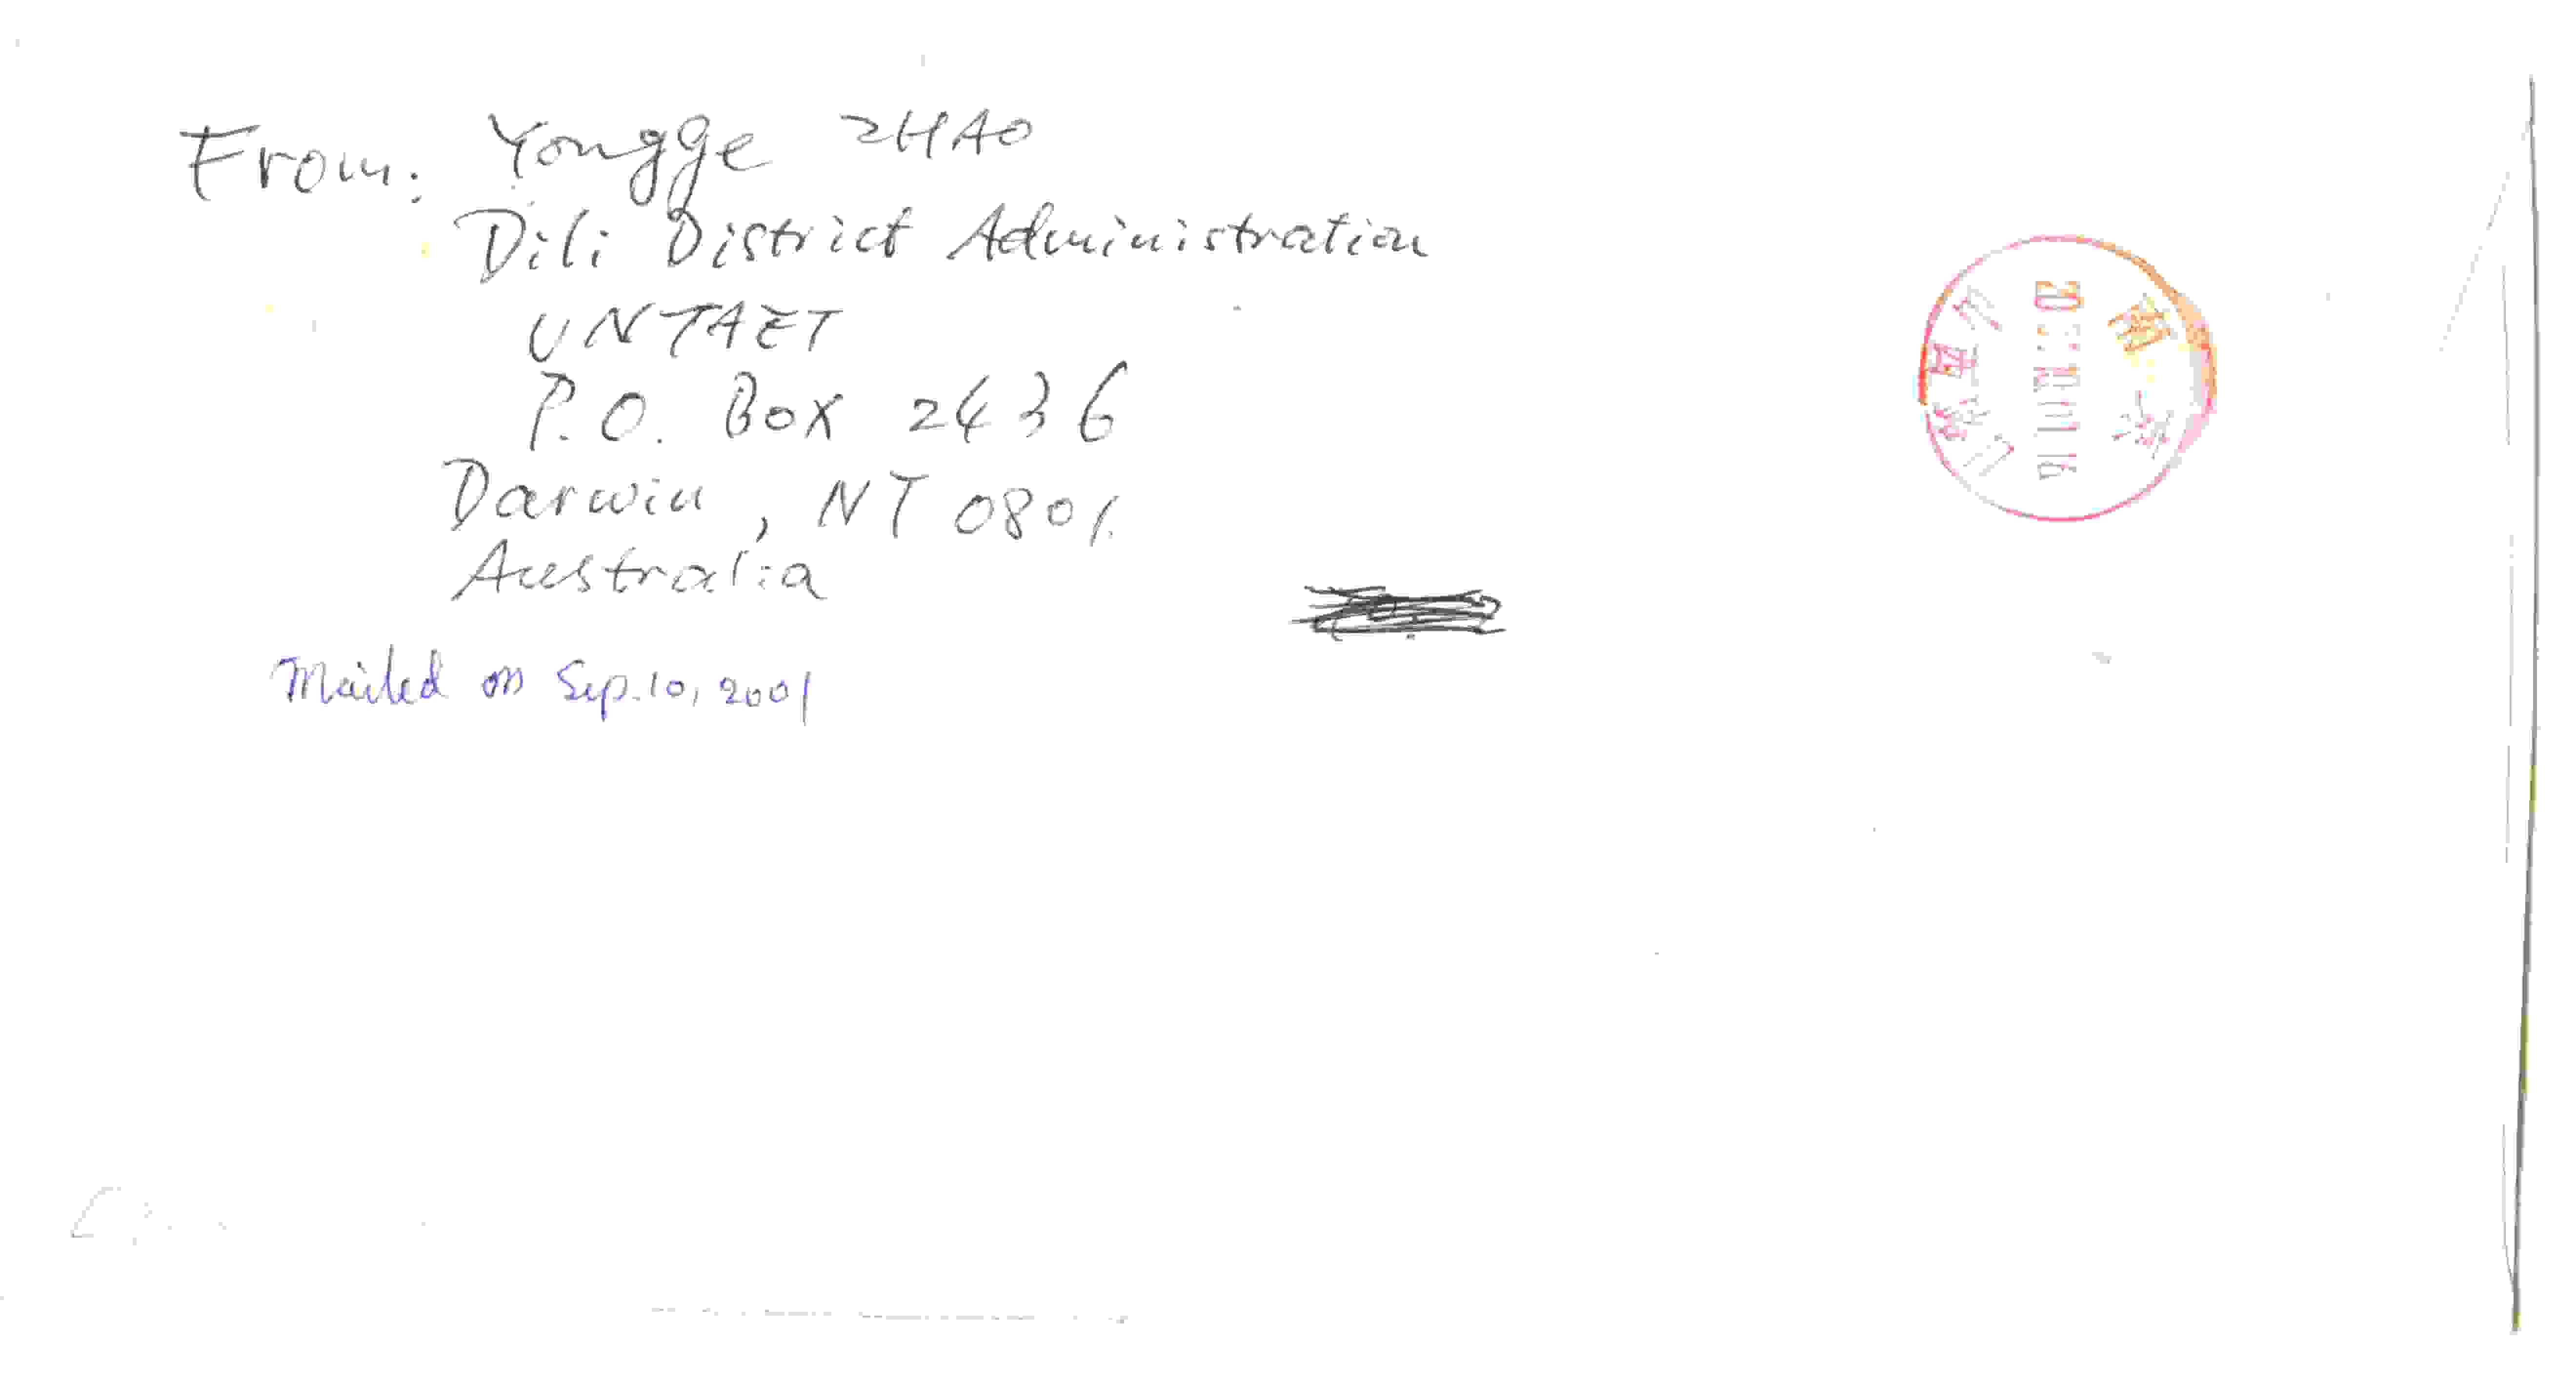 From: Yongge ZHAO
Dili District Administration
UNTAET
P.O. Box 2436
Darwin, NT 0801
Australia
Mailed on Sep. 10, 2001